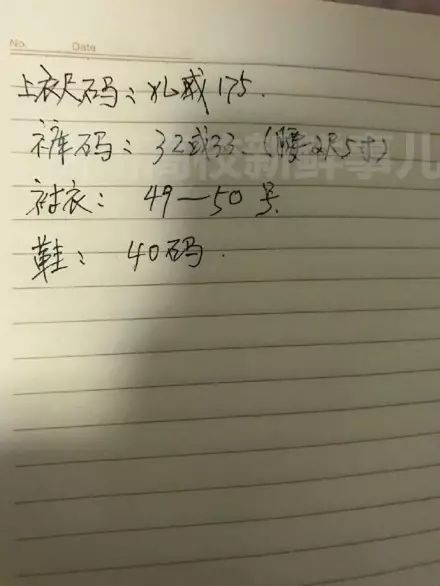 No.
Date
上衣尺码：XL或175.
裤码：32或33.（腰2尺5寸）
衬衣：49—50号.
鞋：40码.
高校新鲜事儿